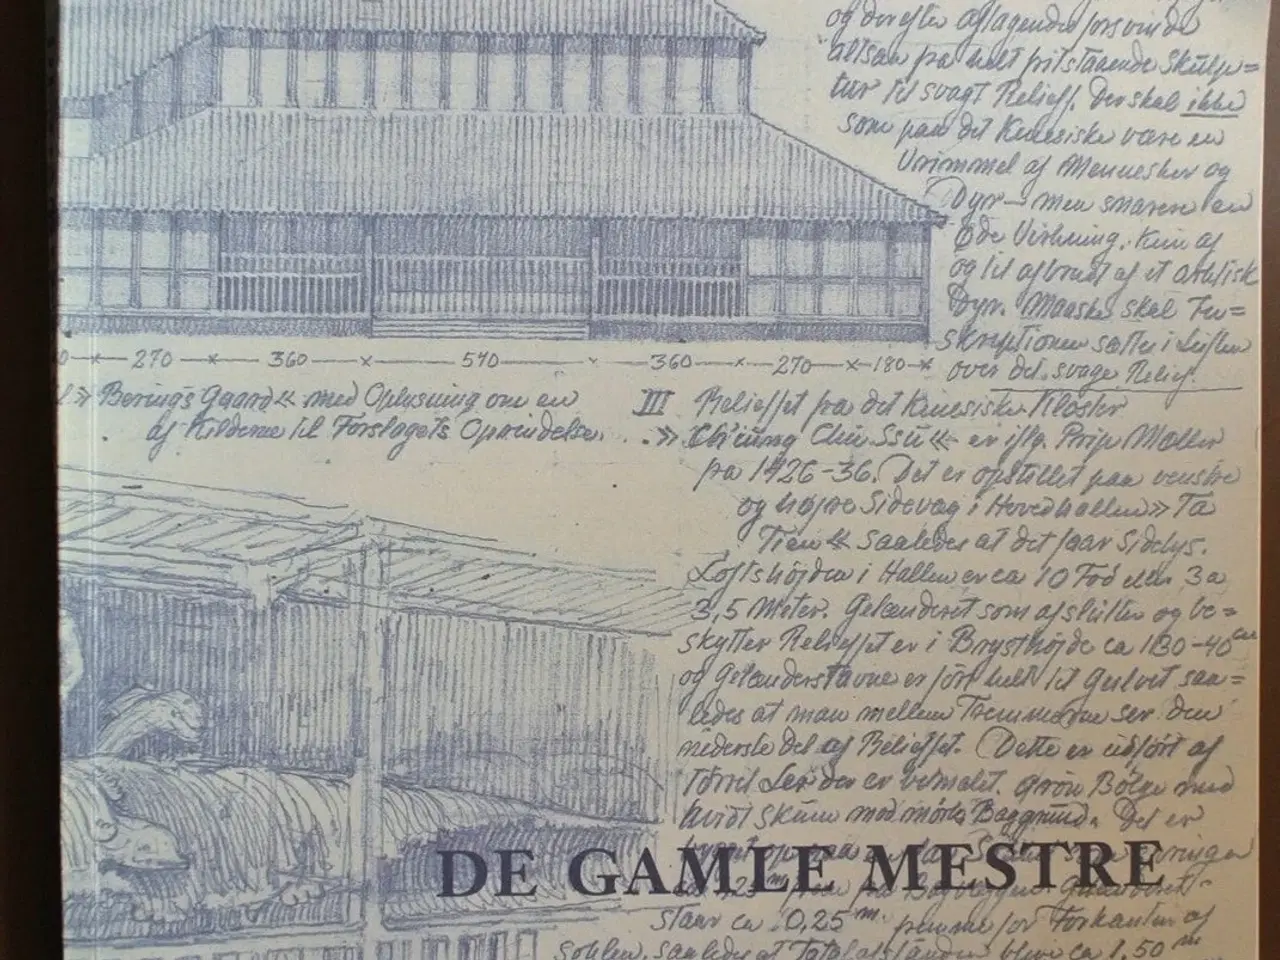 og derefter aftagende forsvinde
altsaa fra helt fritstaaende Skulp=
tur til svagt Relief. Der skal ikke
som paa det Kinesiske være en
Vrimmel af Mennesker og
Dyr — men snarere en
øde Virkning. Kun af
og til afbrudt af et arktisk
Dyr. Maaske skal In=
skriptionen sættes i Luften
over det svage Relief.
0 270 360 540 360 270 180
»Berings Gaard« med Oplysning om en
af Kilderne til Forslagets Oprindelse.
III Relieffet fra det Kinesiske Kloster
»Ch'iung Chu Ssu« er iflg. Prip Møller
fra 1426-36. Det er opstillet paa venstre
og højre Sidevæg i Hovedhallen »Ta
Tien« saaledes at det faar Sidelys.
Loftshøjden i Hallen er ca 10 Fod eller 3 a
3,5 Meter. Gelænderet som afslutter og be=
skytter Relieffet er i Brysthøjde ca 130-40 cm
og Gelænderstavene er ført helt til Gulvet saa=
ledes at man mellem Tremmerne ser den
nederste Del af Relieffet. Dette er udført af
tørret Ler der er bemalet. Grøn Bølge med
hvidt Skum mod mørk Baggrund. Det er
DE GAMLE MESTRE
staar ca 0,25 m. for Forkanten af
Soklen, saaledes at Totalafstanden bliver ca 1,50 m